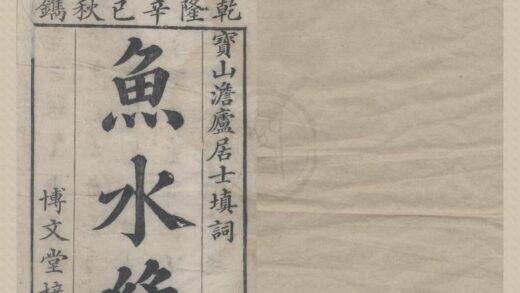 乾隆辛巳秋鐫
寶山澹廬居士填詞
魚水
博文堂